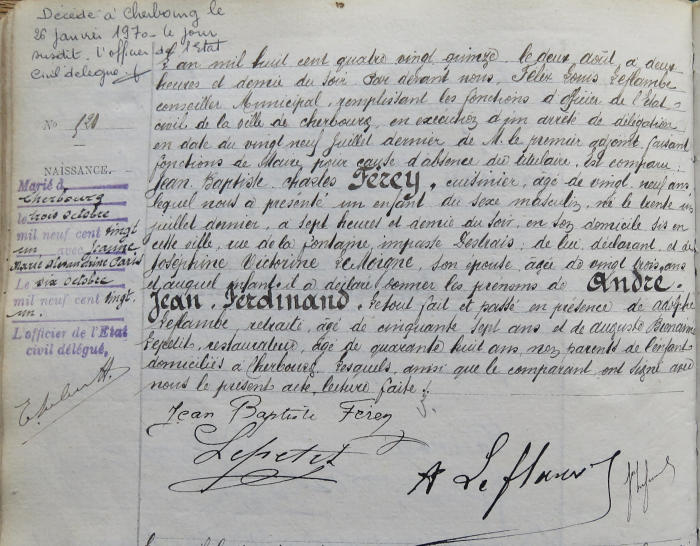 Décédé à Cherbourg le
26 janvier 1970. le jour
susdit. l'officier de l'Etat
Civil délégué
No 520
NAISSANCE.
Marié à
Cherbourg
le trois octobre
mil neuf cent vingt
un, avec Jeanne
Marie Alexandrine
Le six octobre
mil neuf cent vingt.
un.
L'officier de l'Etat
civil délégué,
L'an mil huit cent quatre vingt quinze, le deux août, à deux
heures et demie du soir Par devant nous, Félix Louis Leflambe
conseiller Municipal, remplissant les fonctions d'officier de l'Etat-
civil de la ville de Cherbourg, en exécution d'un arrêté de délégation
en date du vingt neuf juillet dernier de M. le premier adjoint, faisant
fonctions de Maire, pour cause d'absence du titulaire, est comparu:
Jean Baptiste Charles Férey, cuisinier, âgé de vingt neuf ans
lequel nous a présenté un enfant du sexe masculin, né le trente un
juillet dernier, à sept heures et demie du soir, en son domicile sis en
cette ville, rue de la Fontaine, impasse de lui, déclarant, et de
Joséphine Victorine LeMoigne, son épouse, âgée de vingt trois ans
et auquel enfant il a déclaré donner les prénoms de André.
Jean. Ferdinand. Le tout fait et passé en présence de
Leflambe, retraité, âgé de cinquante sept ans et de Auguste Bienaimé
Lepetit, restaurateur, âgé de quarante huit ans, non parents de l'enfant
domiciliés à Cherbourg, lesquels, ainsi que le comparant, ont signé avec
nous le présent acte, lecture faite.
Jean Baptiste Férey
Lepetit